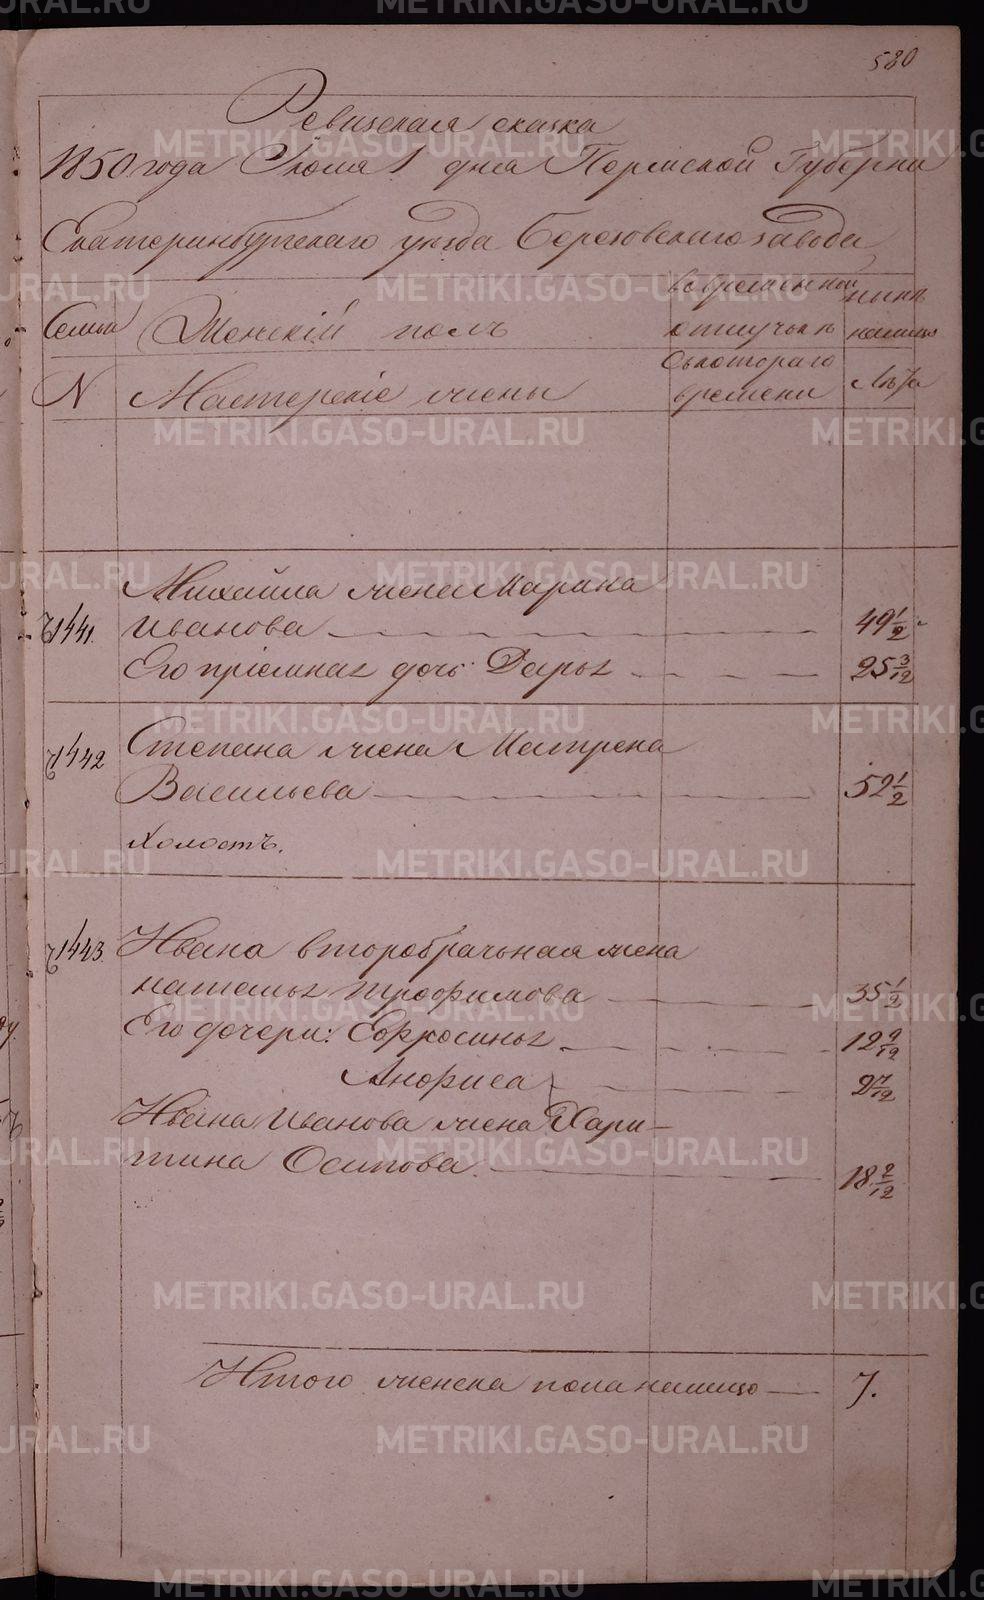 580
Ревизская сказка
1850 года Июля 1 дня Пермской Губернии
Екатеринбургскаго уезда Березовскаго завода
Семьи
Женскій полъ
во временной
отлучькѣ
нынѣ
налицо
N
Мастерскіе жены
Съ котораго
времени
Лѣта
1441.
Михайла жена Марина
Иванова
49 1/2
Его пріемная дочь Дарья
25 3/12
1442
Степана жена Матрена
Васильева
52 1/2
Холостъ.
1443.
Ивана второбрачьная жена
наталья трофимова
35 1/2
Его дочери: Ефросинья
12 9/12
Анфиса
2 7/12
Ивана Иванова жена Хари-
тина Осипова
18 2/12
Итого женска пола налицо
7.
METRIKI.GASO-URAL.RU